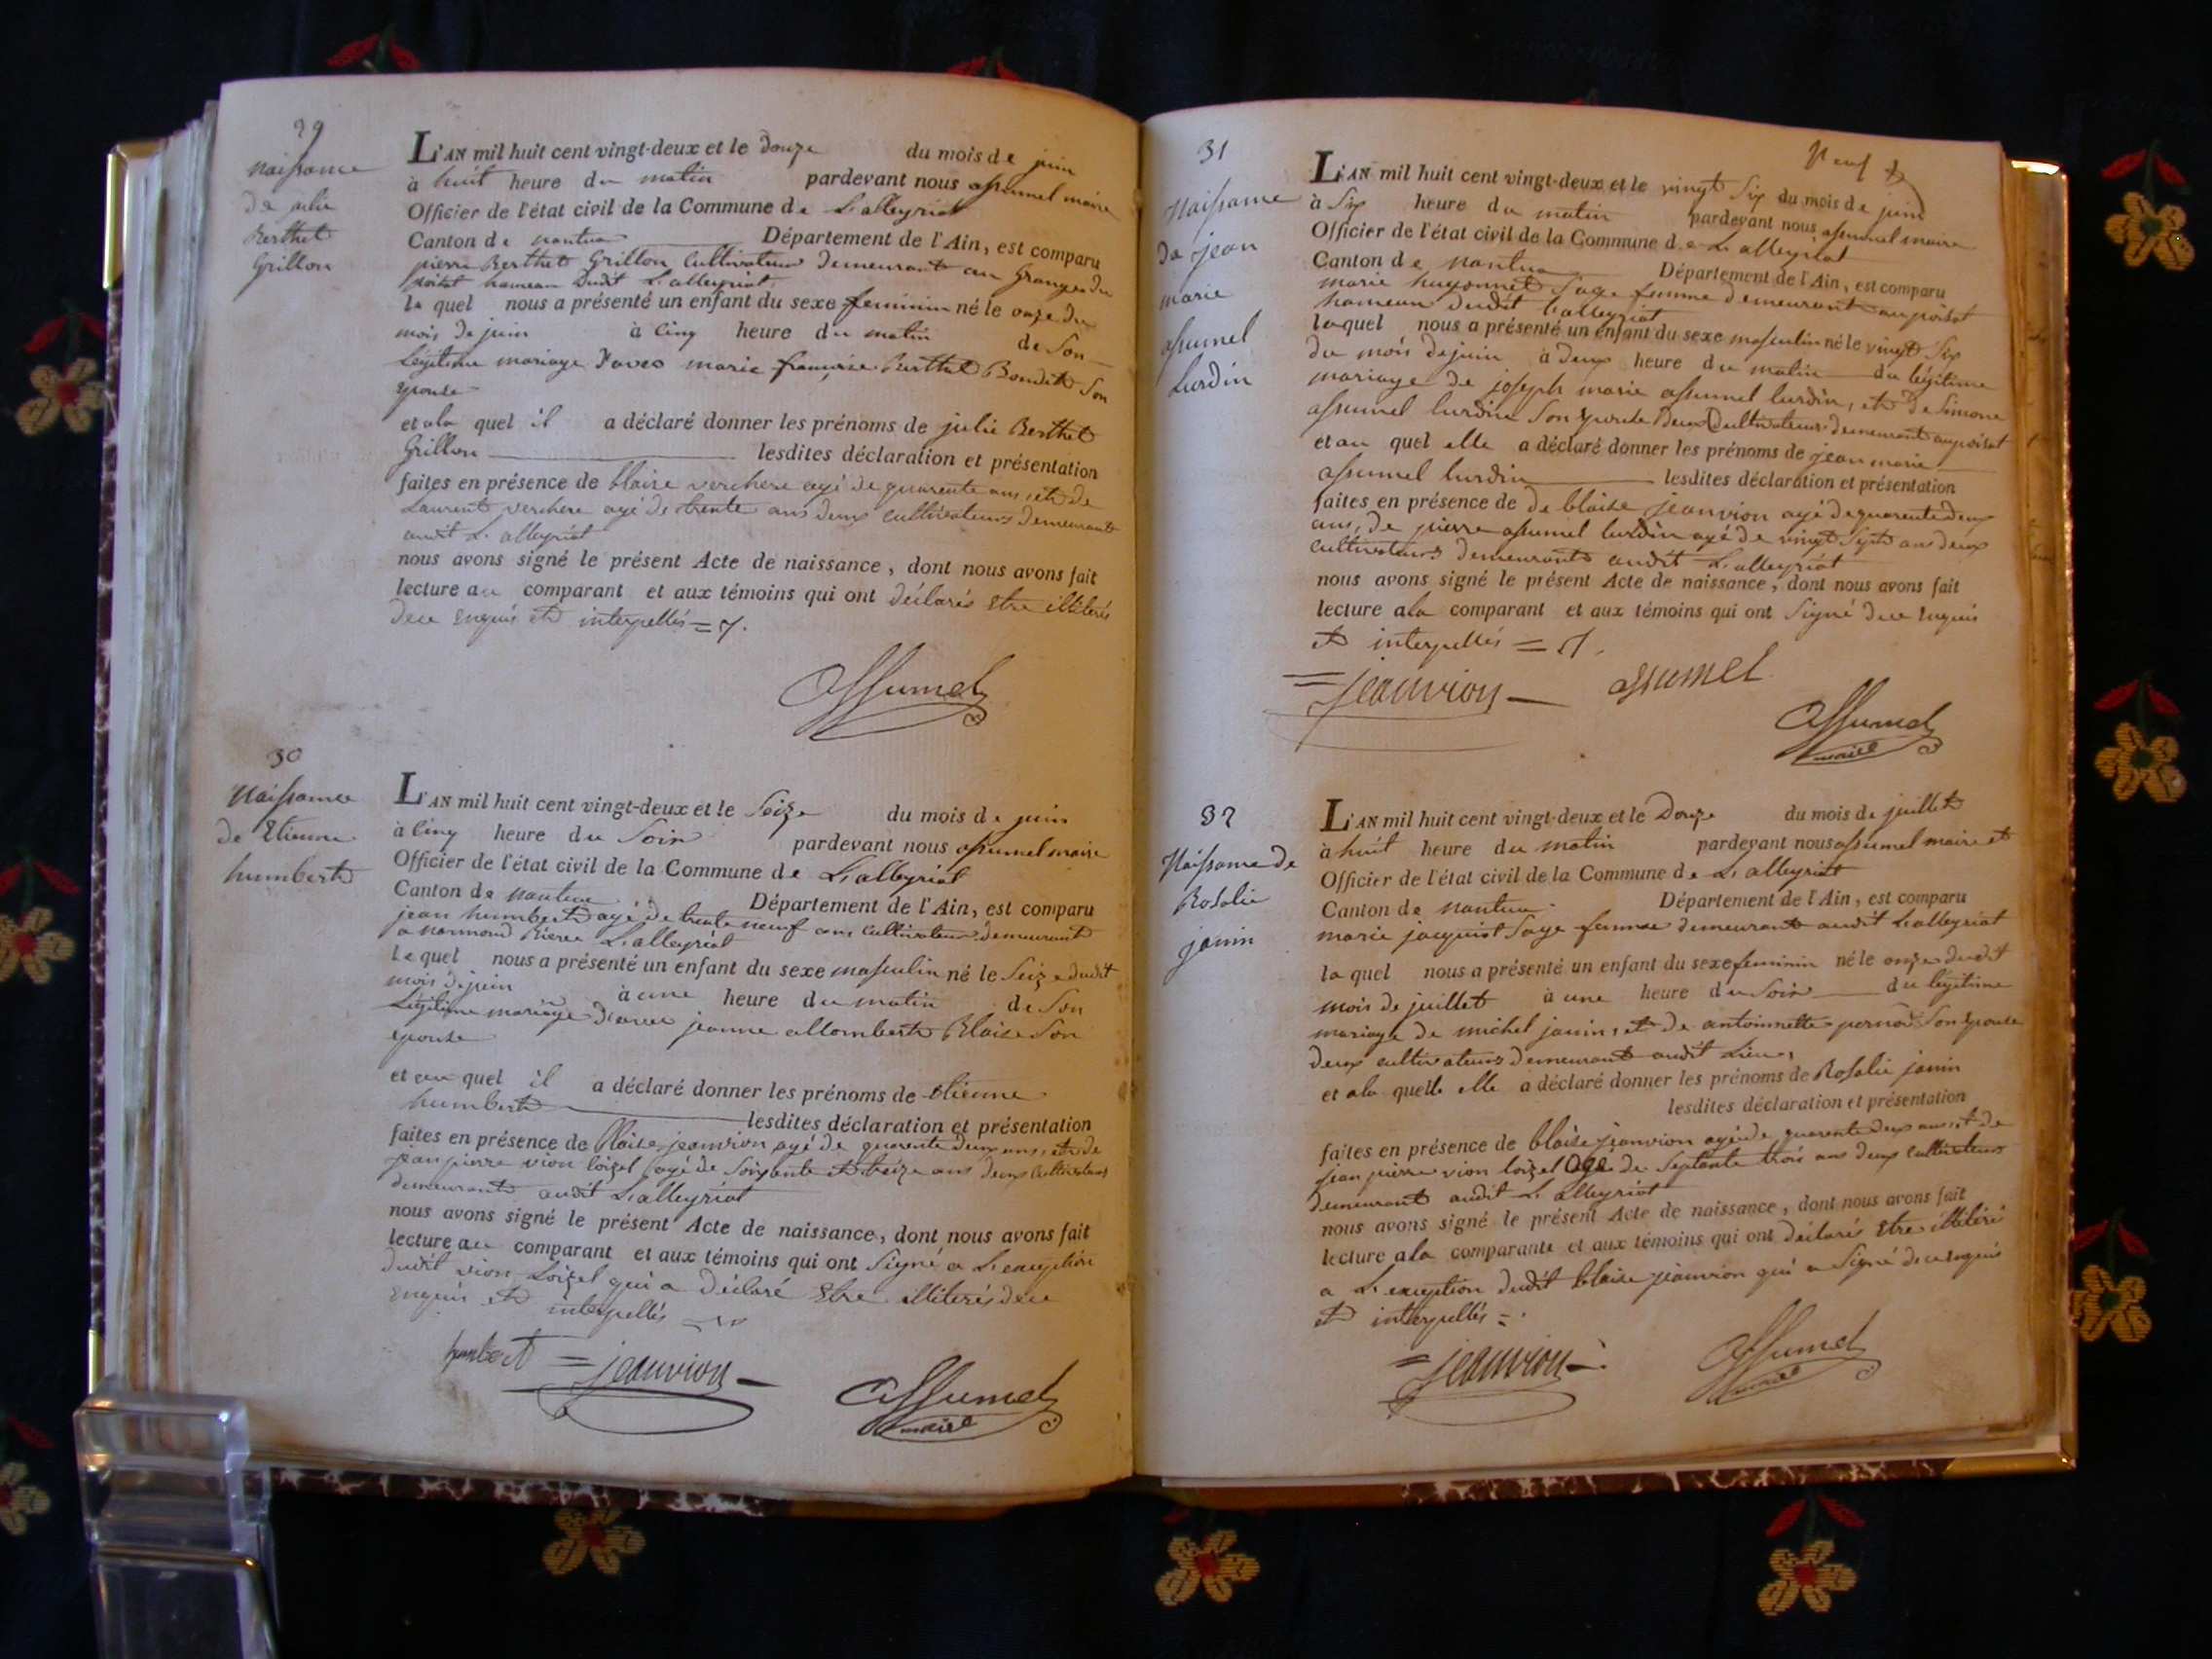 29
Naissance
de julie
Berthet
Grillon
L'AN mil huit cent vingt-deux et le douze du mois de juin
à huit heure du matin pardevant nous assumel maire
Officier de l'état civil de la Commune de L'alleyriat
Canton de nantua Département de l'Ain, est comparu
pierre Berthet Grillon Cultivateur demeurant au Granges du
poizat hameau dudit L'alleyriat
le quel nous a présenté un enfant du sexe feminin né le onze du
mois de juin à cinq heure du matin de son
légitime mariage d'avec marie françoise Berthet Bondet son
épouse
et ala quel il a déclaré donner les prénoms de julie Berthet
Grillon lesdites déclaration et présentation
faites en présence de blaise verchere agé de quarente ans, et de
Laurent verchere agé de trente ans deux cultivateurs demeurants
audit L'alleyriat
nous avons signé le présent Acte de naissance, dont nous avons fait
lecture au comparant et aux témoins qui ont déclarés etre illiterés
dece enquis et interpellés =
assumel
30
Naissance
de Etienne
humbert
L'AN mil huit cent vingt-deux et le Seize du mois de juin
à cinq heure du Soir pardevant nous assumel maire
Officier de l'état civil de la Commune de L'alleyriat
Canton de nantua Département de l'Ain, est comparu
jean humbert agé de trente neuf ans cultivateur demeurant
a L'alleyriat
Le quel nous a présenté un enfant du sexe masculin né le Seize dudit
mois de juin à une heure du matin de son
Légitime mariage d'avec jeanne allombert Blaise son
epouse
et au quel il a déclaré donner les prénoms de etienne
humbert lesdites déclaration et présentation
faites en présence de Blaise jeanvion agé de quarente deux ans, et de
jean pierre vion loizel agé de soixante et treize ans deux cultivateurs
demeurants audit L'alleyriat
nous avons signé le présent Acte de naissance, dont nous avons fait
lecture au comparant et aux témoins qui ont Signé a L'exception
dudit vion Loizel qui a déclaré Etre illiterés dece
enquis et interpellés
humbert = jeanvion assumel
maire
Neuf
31
Naissance
de jean
marie
assumel
Lurdin
L'AN mil huit cent vingt-deux et le vingt Six du mois de juin
à Six heure du matin pardevant nous assumel maire
Officier de l'état civil de la Commune de L'alleyriat
Canton de nantua Département de l'Ain, est comparu
marie hugonnet Sage femme demeurant au poizat
hameau dudit L'alleyriat
laquel nous a présenté un enfant du sexe masculin né le vingt Six
du mois de juin à deux heure du matin du légitime
mariage de joseph marie assumel lurdin, et de Simone
assumel lurdin Son epouse deux Cultivateurs demeurant au poizat
et au quel elle a déclaré donner les prénoms de jean marie
assumel lurdin lesdites déclaration et présentation
faites en présence de de blaise jeanvion agé de quarente deux
ans, de pierre assumel lurdin agé de vingt Sept ans deux
cultivateurs demeurants audit L'alleyriat
nous avons signé le présent Acte de naissance, dont nous avons fait
lecture ala comparant et aux témoins qui ont Signé dece enquis
et interpellés =
= jeanvion assumel
assumel
maire
32
Naissance de
Rosalie
janin
L'AN mil huit cent vingt-deux et le Douze du mois de juillet
à huit heure du matin pardevant nous assumel maire et
Officier de l'état civil de la Commune de L'alleyriat
Canton de nantua Département de l'Ain, est comparu
marie jacquiot Sage femme demeurant audit L'alleyriat
la quel nous a présenté un enfant du sexe feminin né le onze dudit
mois de juillet à une heure du Soir du légitime
mariage de michel janin, et de antoinette Son epouse
deux cultivateurs demeurant audit Lieu,
et ala quelle elle a déclaré donner les prénoms de Rosalie janin
lesdites déclaration et présentation
faites en présence de blaise jeanvion agé de quarente deux ans et de
jean pierre vion loizel agé de Septante trois ans deux cultivateurs
demeurant audit L'alleyriat
nous avons signé le présent Acte de naissance, dont nous avons fait
lecture ala comparante et aux témoins qui ont déclarés Etre illitéré
a L'exception dudit blaise jeanvion qui a Signé dece enquis
et interpellés =
= jeanvion assumel
maire